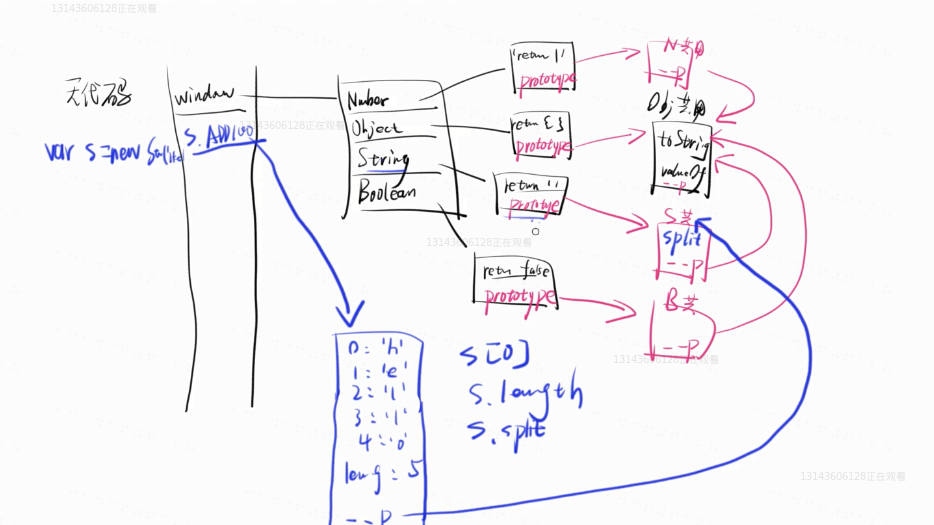 13143606128正在观看
无代码
window
s.ADD100
13143606128正在观看
var s=new
Number
Object
String
Boolean
return 1
prototype
return {}
prototype
return ''
prototye
retun false
prototype
N共用
--P
Obj共用
toString
valueOf
--P
S共
split
--P
B共
--P
13143606128正在观看
13143606128正在观看
0:'h'
1:'e'
2:'l'
3:'l'
4:'o'
leng:5
--P
s[0]
s.length
s.split
13143606128正在观看